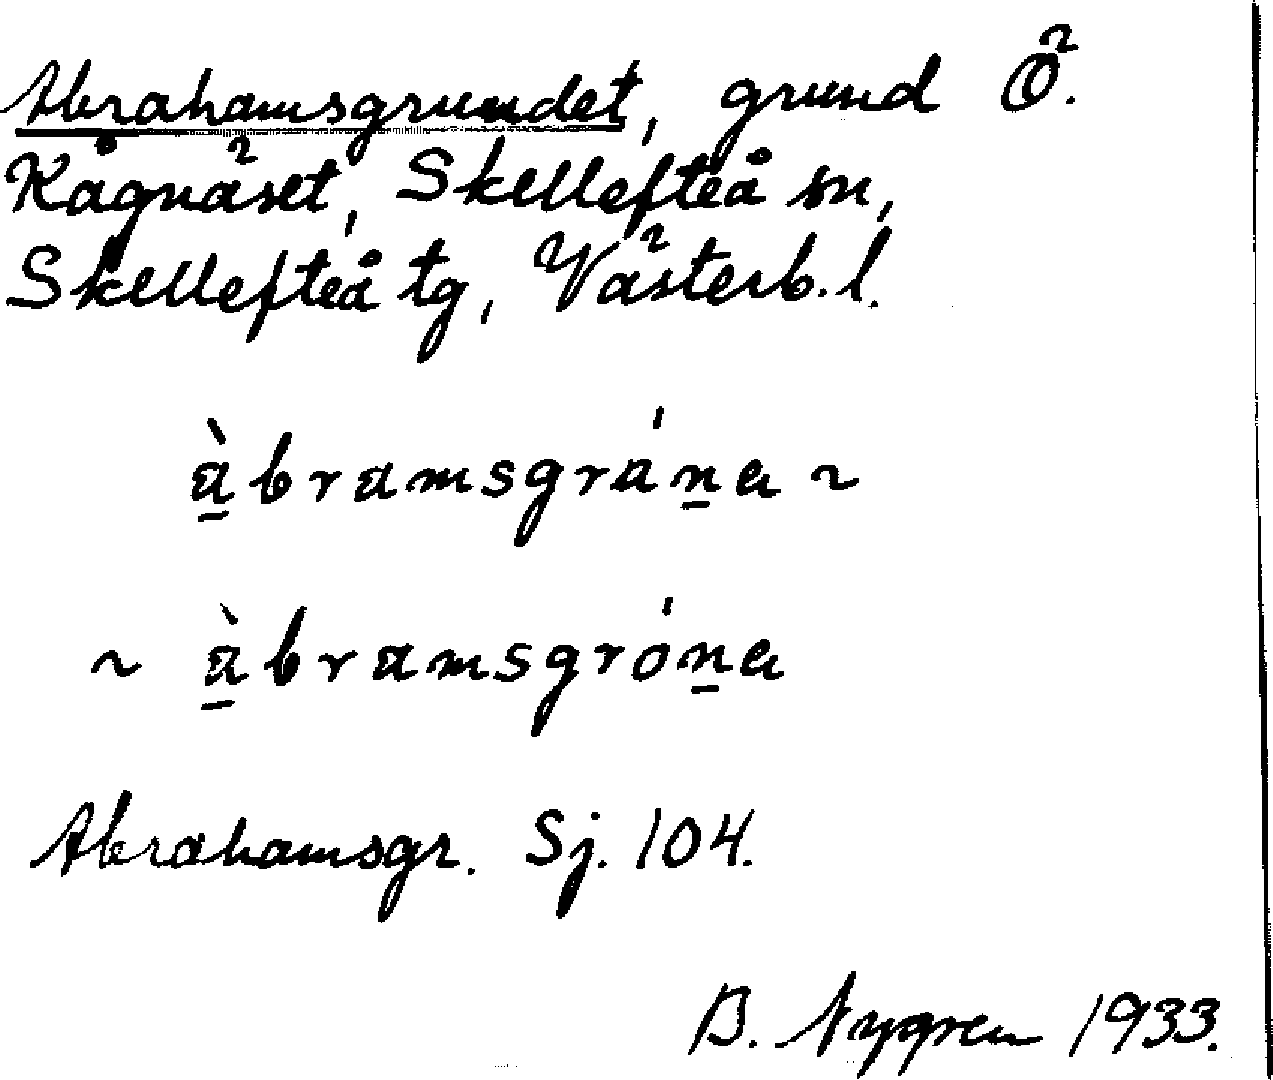 Abrahamsgrundet, grund Ö.
Kågnäset, Skellefteå sn,
Skellefteå tg, Västerb. l.
à̱bramsgrán̠a ~
~ à̱bramsgrón̠a
Abrahamsgr. Sj. 104.
B. Nygren 1933.